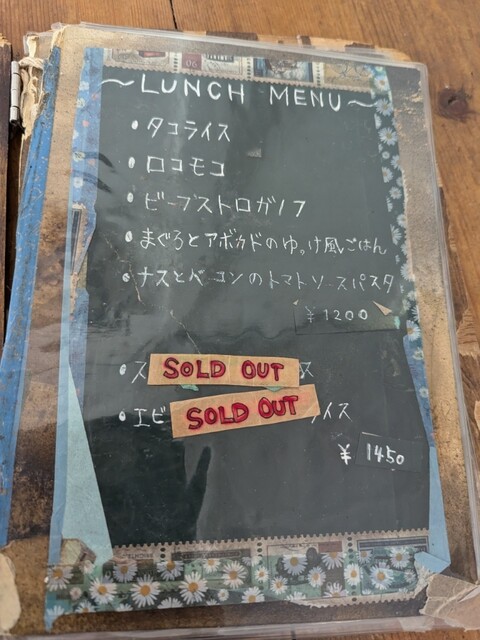 ~LUNCH MENU~
・タコライス
・ロコモコ
・ビーフストロガノフ
・まぐろとアボカドのゆっけ風ごはん
・ナスとベーコンのトマトソースパスタ
¥1200
・ス SOLD OUT
・エビ SOLD OUT イス
¥ 1450